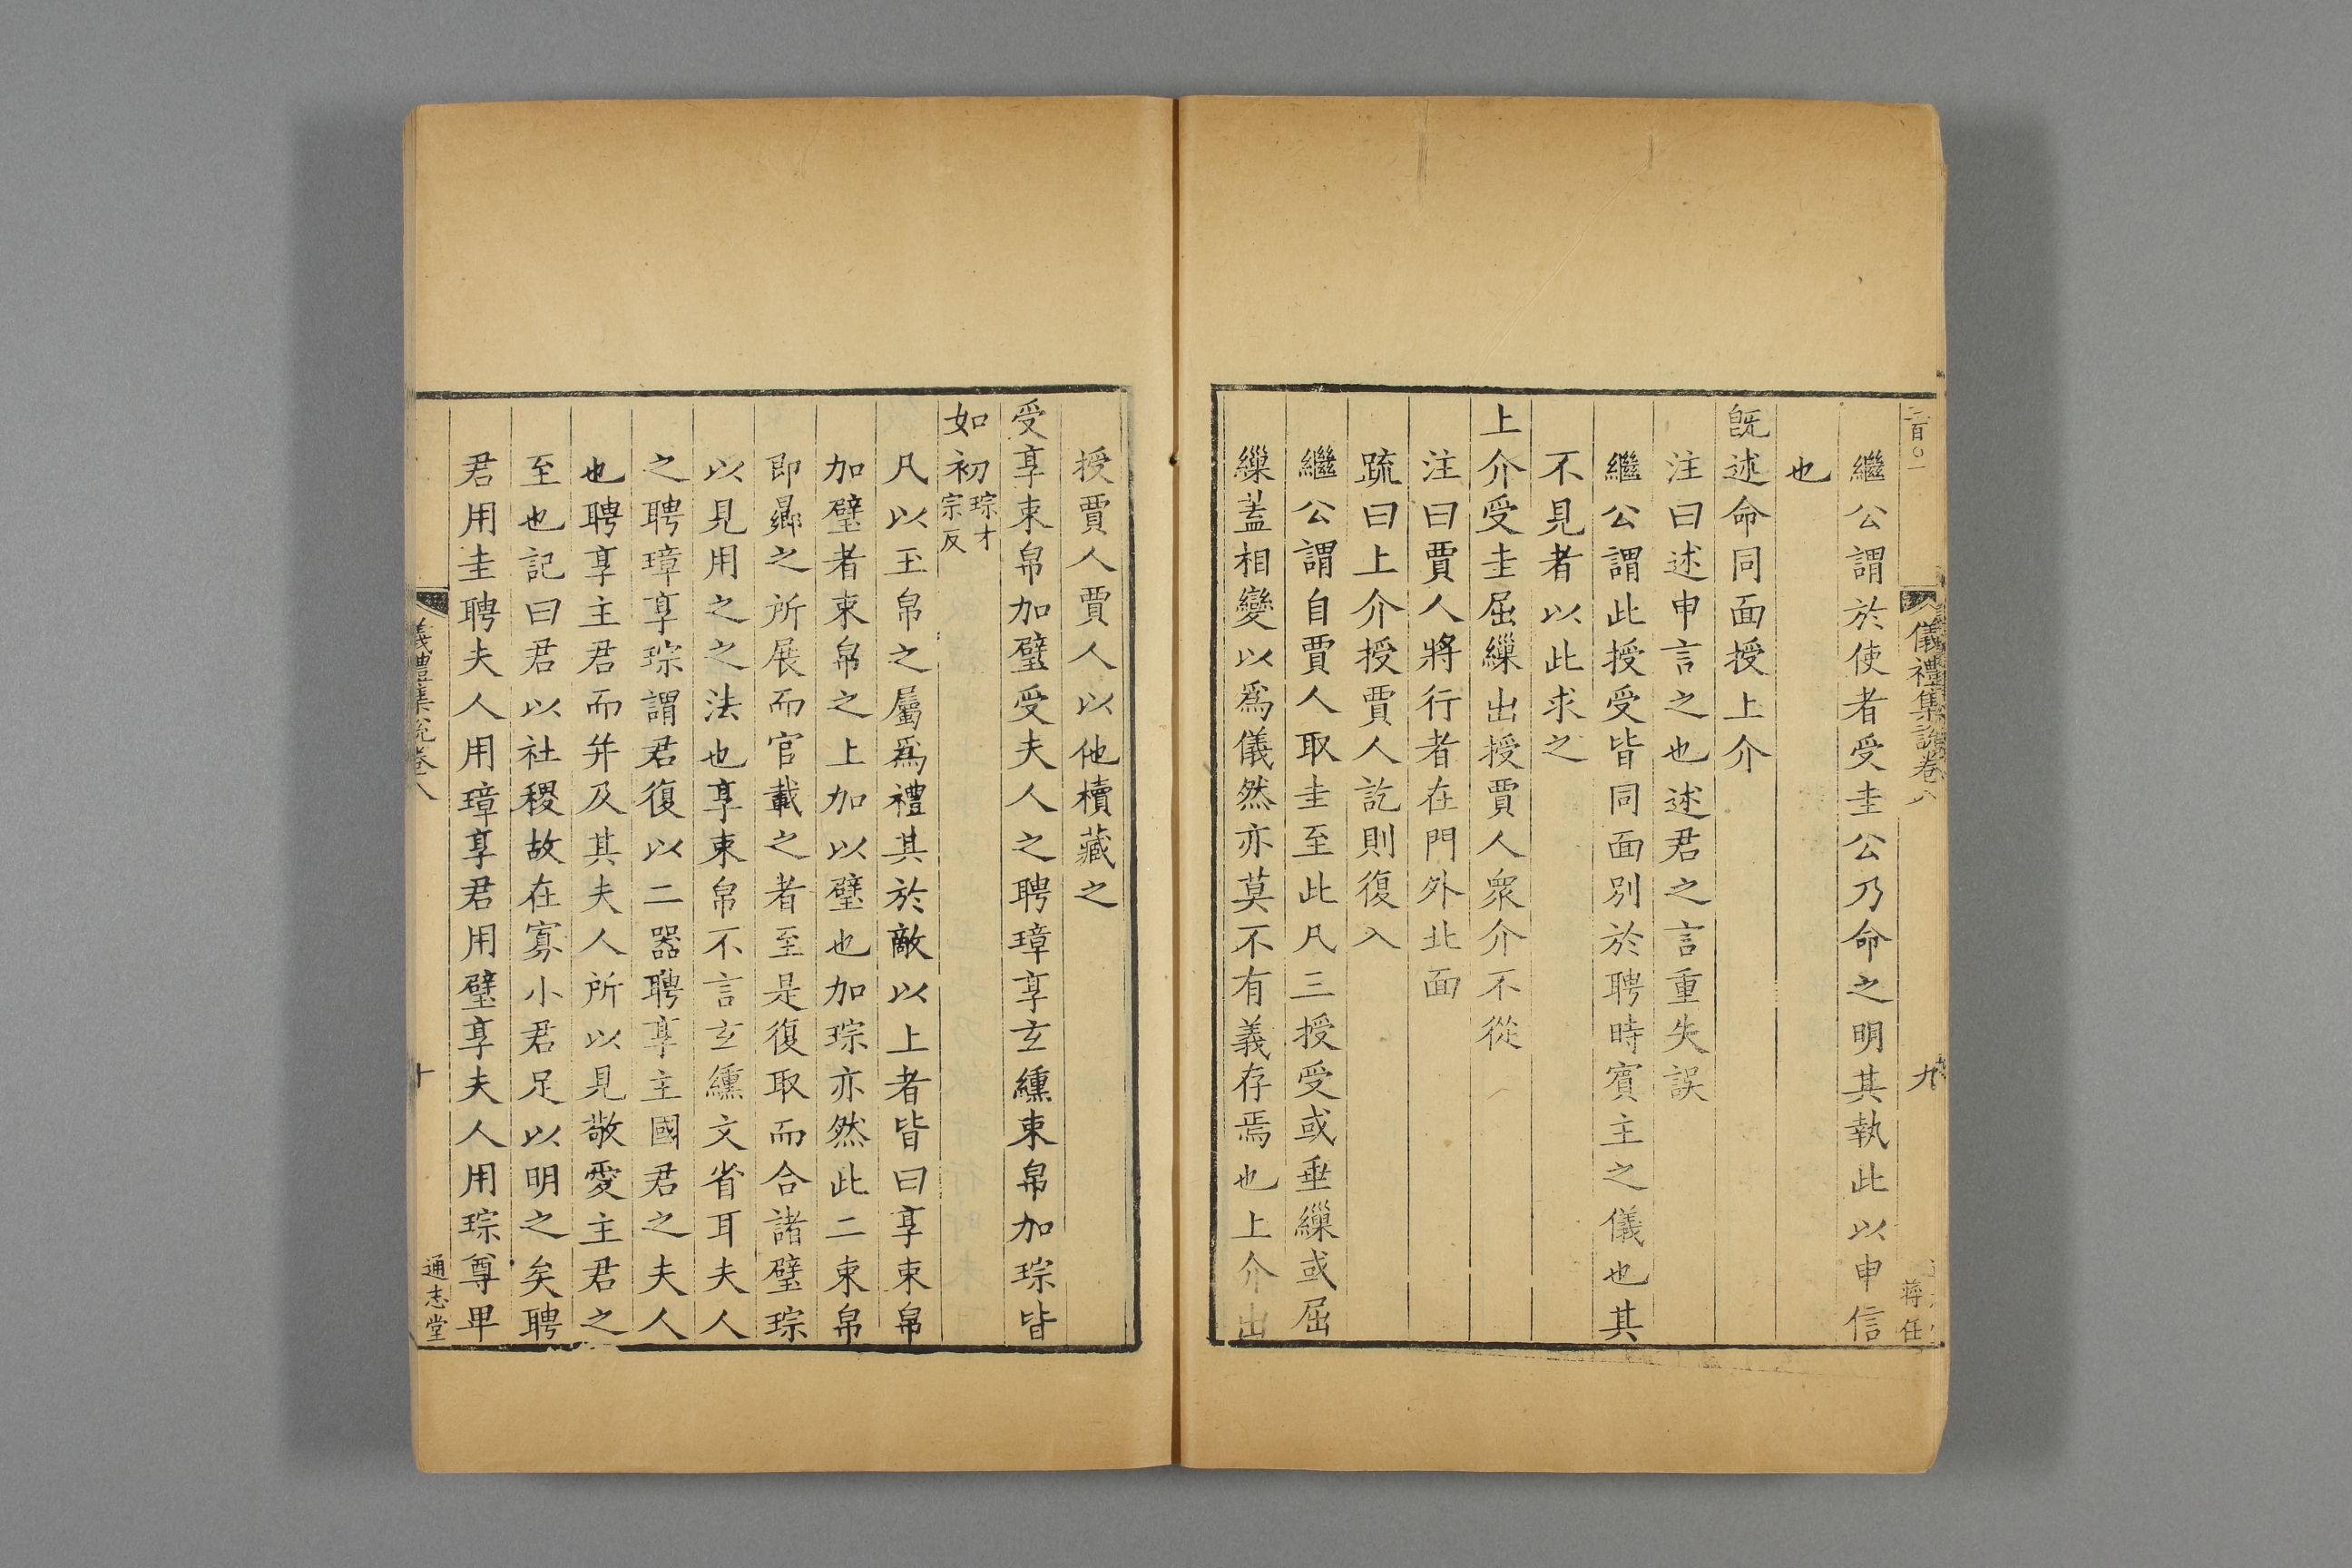 儀禮集說卷八
九
蔣任
繼公謂於使者受圭公乃命之明其執此以申信
也
旣述命同面授上介
注曰述申言之也述君之言重失誤
繼公謂此授受皆同面別於聘時賓主之儀也其
不見者以此求之
上介受圭屈繅出授賈人衆介不從
注曰賈人將行者在門外北面
疏曰上介授賈人訖則復入
繼公謂自賈人取圭至此凡三授受或垂繅或屈
繅蓋相變以爲儀然亦莫不有義存焉也上介出
授賈人賈人以他櫝藏之
受享束帛加璧受夫人之聘璋享玄纁束帛加琮皆
如初琮才宗反
凡以玉帛之屬爲禮其於敵以上者皆曰享束帛
加璧者束帛之上加以璧也加琮亦然此二束帛
卽曏之所展而官載之者至是復取而合諸璧琮
以見用之之法也享束帛不言玄纁文省耳夫人
之聘璋享琮謂君復以二器聘享主國君之夫人
也聘享主君而幷及其夫人所以見敬愛主君之
至也記曰君以社稷故在寡小君足以明之矣聘
君用圭聘夫人用璋享君用璧享夫人用琮尊卑
儀禮集說卷八
十
通志堂